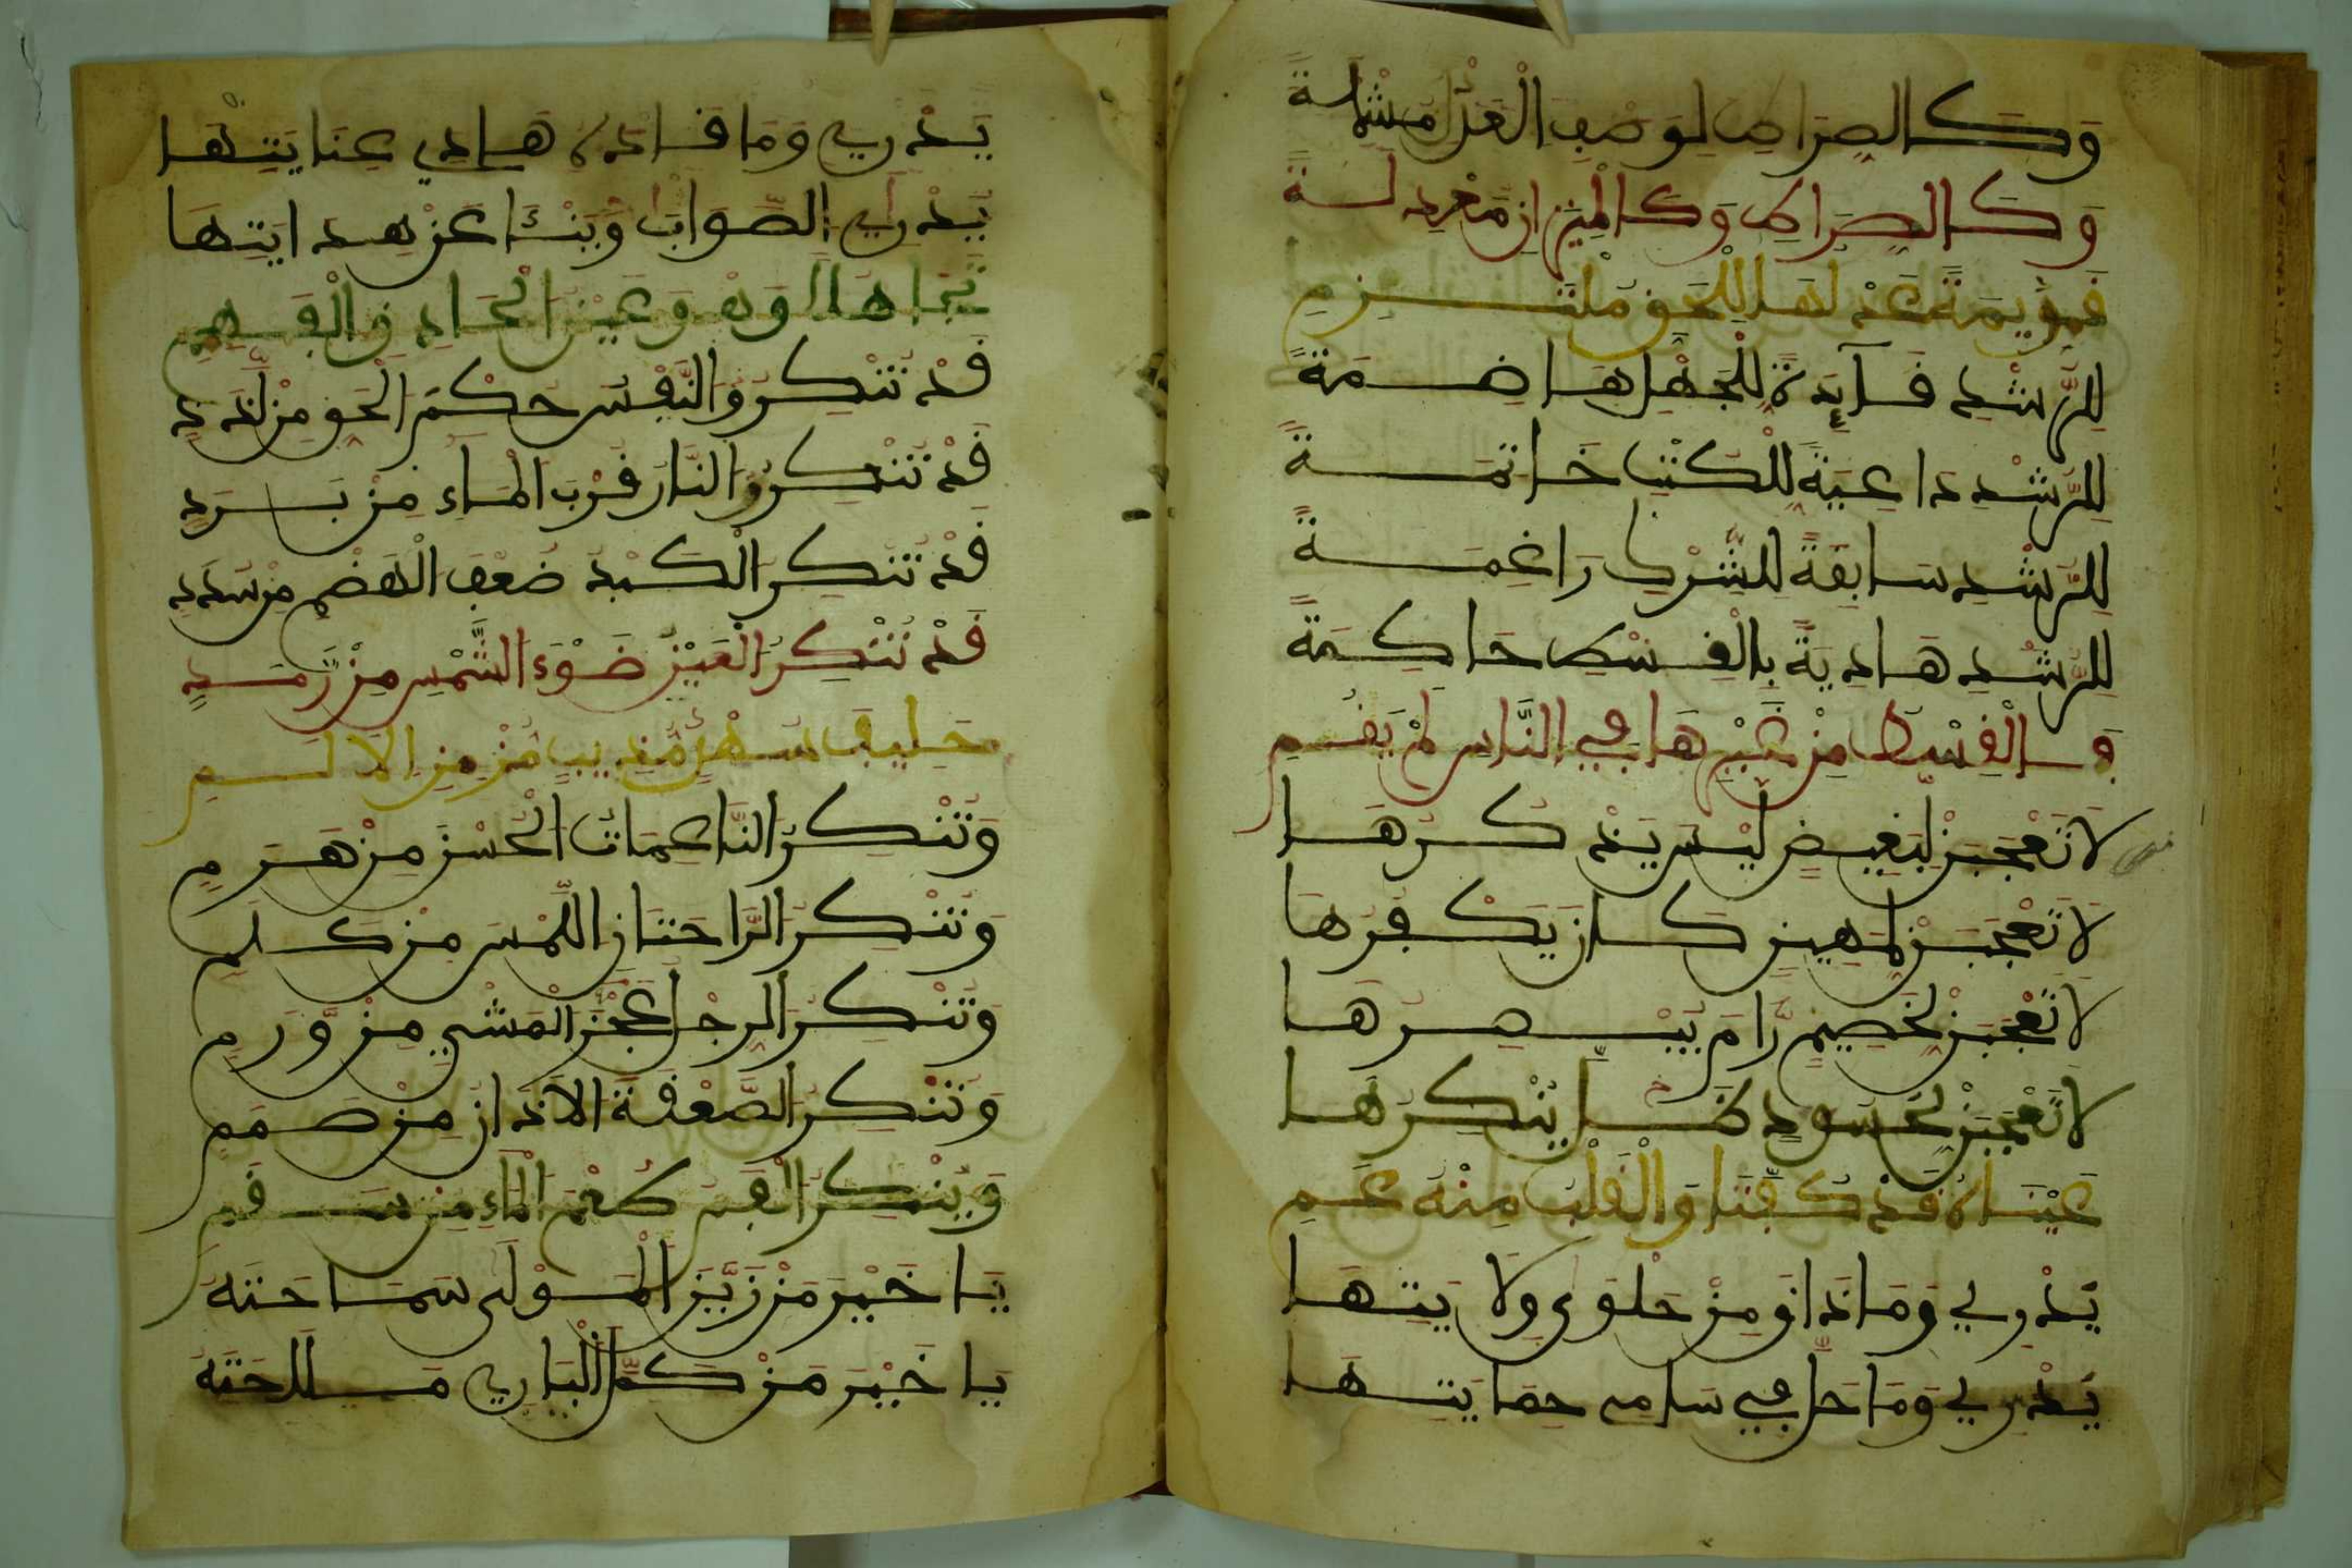 وَكَالصِرَاطِ لِوَصْفِ الْعَدْلِ مُشْبِهَةً
وَكَالصِرَاطِ وَكَالْمِيزَانِ مَعْدِلَةً
لِلرُّشْدِ فَآئِدَةٌ لِلْجَهْلِ هَاضِمَةً
لِلرُّشْدِ دَاعِيَةً لِلْكُتْبِ خَاتِمَةً
لِلرُّشْدِ سَابِقَةً لِلشِّرْكِ رَاغِمَةً
لِلرُّشْدِ هَادِيَةً بِالْقِسْطِ حَاكِمَةً
فَالْقِسْطُ مِنْ غَيْرِهَا فِي النَّاسِ لَمْ يَقُمِ
لَا تَعْجَبَنْ لِبَغِيضٍ لَيْسَ يَذْكُرُهَا
لَا تَعْجَبَنْ لِمَهِينٍ كَانَ يَكْفُرُهَا
لَا تَعْجَبَنْ لِخَصِيمٍ رَّامَ يَبْهَرُهَا
لَا تَعْجَبَنْ لِحَسُودٍ ظَلَّ يُنْكِرُهَا
عَيْنَاهُ قَدْ كُفَّتَا وَالْقَلْبُ مِنْهُ عَمِ
يَدْرِي وَمَا ذَاقَ مِنْ حَلْوَى وِلَايَتِهَا
يَدْرِي وَمَا حَلَّ فِي سَامِي حِمَايَتِهَا
يَدْرِي وَمَا قَادَهُ هَادِي عِنَايَتِهَا
يَدْرِي الصَّوَابَ وَيَنْئَا عَنْ هِدَايَتِهَا
تَجَاهُلًا وَهْوَ عَيْنُ الْحَاذِقِ الْفَهِمِ
قَدْ تُنْكِرُ النَّفْسُ حُكْمَ الْحَقِّ مِنْ لَدَدِ
قَدْ تُنْكِرُ النَّارُ قُرْبَ الْمَاءِ مِنْ بَرَدِ
قَدْ تُنْكِرُ الْكَبِدُ ضُعْفَ الْهَضْمِ مِنْ سُدَدِ
قَدْ تُنْكِرُ الْعَيْنُ ضَوْءَ الشَّمْسِ مِنْ رَّمَدٍ
حَلِيفِ سُهْدٍ مُّذِيبٍ مُّزْمِنِ الْأَلَمِ
وَتُنْكِرُ النَّاعِمَاتُ الْحُسْنَ مِنْ هَرَمِ
وَتُنْكِرُ الرَّاحَتَانِ اللَّمْسَ مِنْ كَلَمِ
وَتُنْكِرُ الرِجْلُ عَجْزَ الْمَشْيِ مِنْ وَّرَمِ
وَتُنْكِرُ الصَّعْقَةَ الْأَذَانُ مِنْ صَمَمِ
وَيُنْكِرُ الْفَمُ طَعْمَ الْمَاءِ مِنْ سَقَمِ
يَا خَيْرَ مَنْ زَيَّنَ الْمَوْلَى سَمَاحَتَهُ
يَا خَيْرَ مَنْ كَمَّلَ الْبَارِي مَلَاحَتَهُ